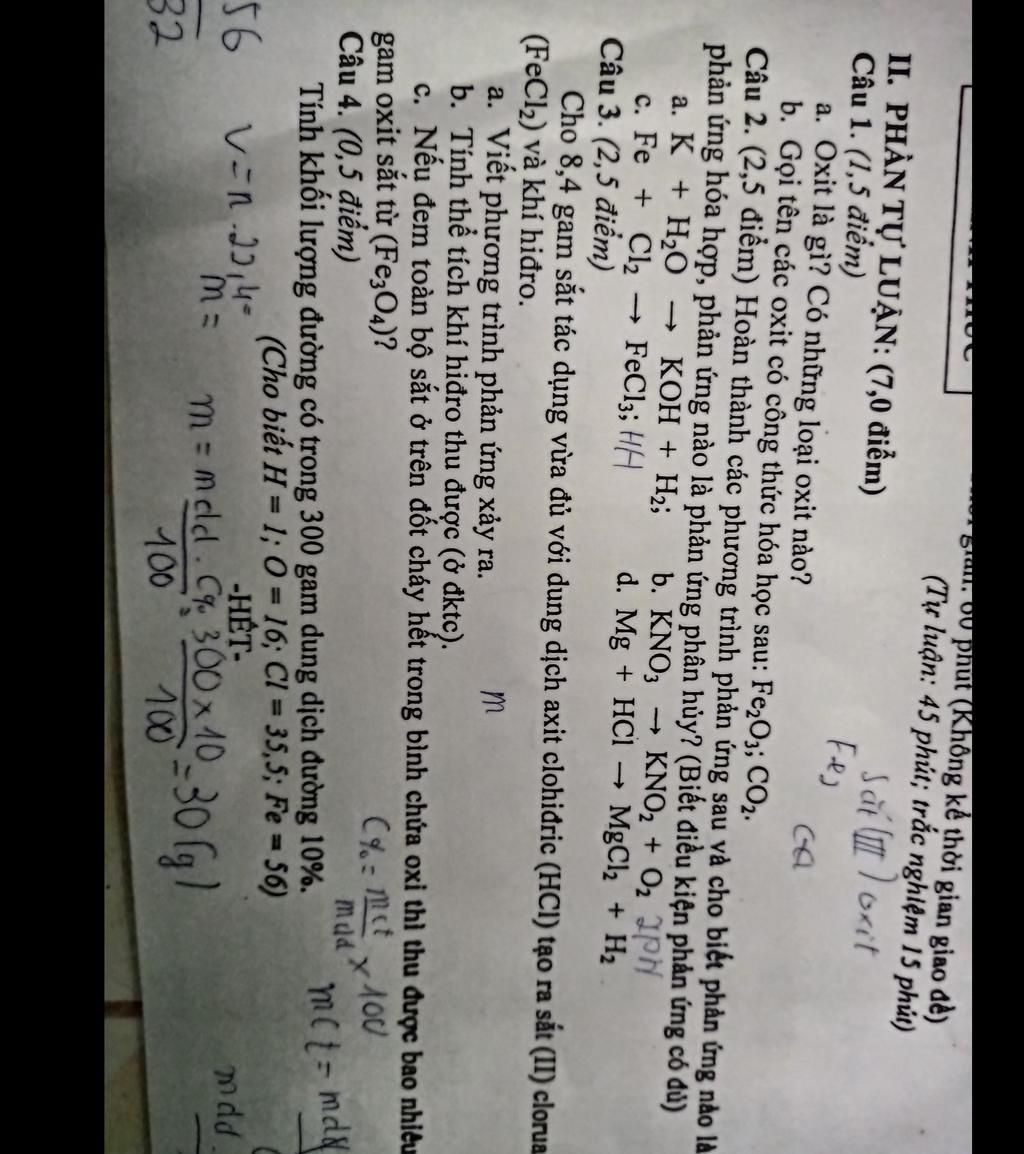 gian: 60 phút (Không kể thời gian giao đề)
(Tự luận: 45 phút; trắc nghiệm 15 phút)
II. PHẦN TỰ LUẬN: (7,0 điểm)
Câu 1. (1,5 điểm)
sắt (III) oxit
a. Oxit là gì? Có những loại oxit nào?
b. Gọi tên các oxit có công thức hóa học sau: Fe₂O₃; CO₂.
Câu 2. (2,5 điểm) Hoàn thành các phương trình phản ứng sau và cho biết phản ứng nào là
phản ứng hóa hợp, phản ứng nào là phản ứng phân hủy? (Biết điều kiện phản ứng có đủ)
a. K + H₂O → KOH + H₂; b. KNO₃ → KNO₂ + O₂
c. Fe + Cl₂ → FeCl₃; HH d. Mg + HCl → MgCl₂ + H₂
Câu 3. (2,5 điểm)
Cho 8,4 gam sắt tác dụng vừa đủ với dung dịch axit clohiđric (HCl) tạo ra sắt (II) clorua
(FeCl₂) và khí hiđro.
a. Viết phương trình phản ứng xảy ra.
m
b. Tính thể tích khí hiđro thu được (ở đktc).
c. Nếu đem toàn bộ sắt ở trên đốt cháy hết trong bình chứa oxi thì thu được bao nhiêu
gam oxit sắt từ (Fe₃O₄)?
C% = mct / mdd × 100
Câu 4. (0,5 điểm)
Tính khối lượng đường có trong 300 gam dung dịch đường 10%.
mct = mdd
(Cho biết H = 1; O = 16; Cl = 35,5; Fe = 56)
-HẾT-
56 V = n . 22,4 =
m =
m = mdd . C% / 100 = 300 × 10 / 100 = 30 (g)
mdd
32